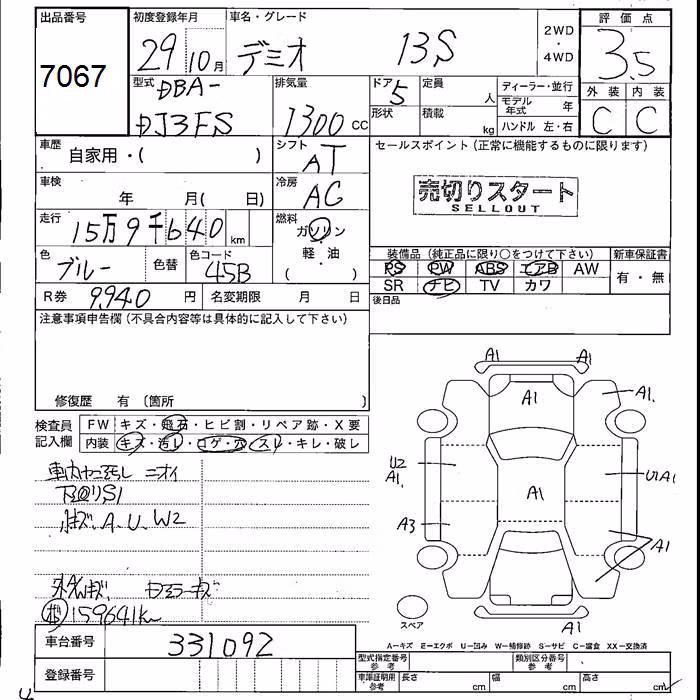 出品番号
7067
初度登録年月
29 10月
車名・グレード
デミオ 13S
2WD・4WD
評価点
3.5
外装 内装
C C
型式
DBA-
DJ3FS
排気量
1300 cc
ドア 5
形状
定員 人
積載 kg
ディーラー・並行
モデル年式 年
ハンドル 左・右
車歴
自家用・( )
シフト
AT
セールスポイント (正常に機能するものに限ります)
売切りスタート
SELLOUT
車検
年 月( 日)
冷房
AC
走行
15万9千640 km
燃料
ガソリン
軽・油
( )
色
ブルー
色替
色コード
45B
装備品 (純正品に限り○をつけて下さい)
PS PW ABS エアB AW
SR ナビ TV カワ
新車保証書
有・無
R券 9,940 円
名変期限 月 日
後日品
注意事項申告欄 (不具合内容等は具体的に記入して下さい)
修復歴 有 (箇所 )
検査員記入欄
FW キズ・飛石・ヒビ割・リペア跡・X要
内装 キズ・汚レ・コゲ・穴・スレ・キレ・破レ
車内ヤニ汚レ ニオイ
下回りS1
キズ、A、U、W2
キズ
159641km
A1 A1
A1
A1.
U2
A1.
U1A1
A1
A3
A1
スペア
A1
A-キズ E-エクボ U-凹み W-補修跡 S-サビ C-腐食 XX-交換済
車台番号
331092
登録番号
型式指定番号
参考
類別区分番号
参考
車庫証明用
参考
長さ cm
幅 cm
高さ cm